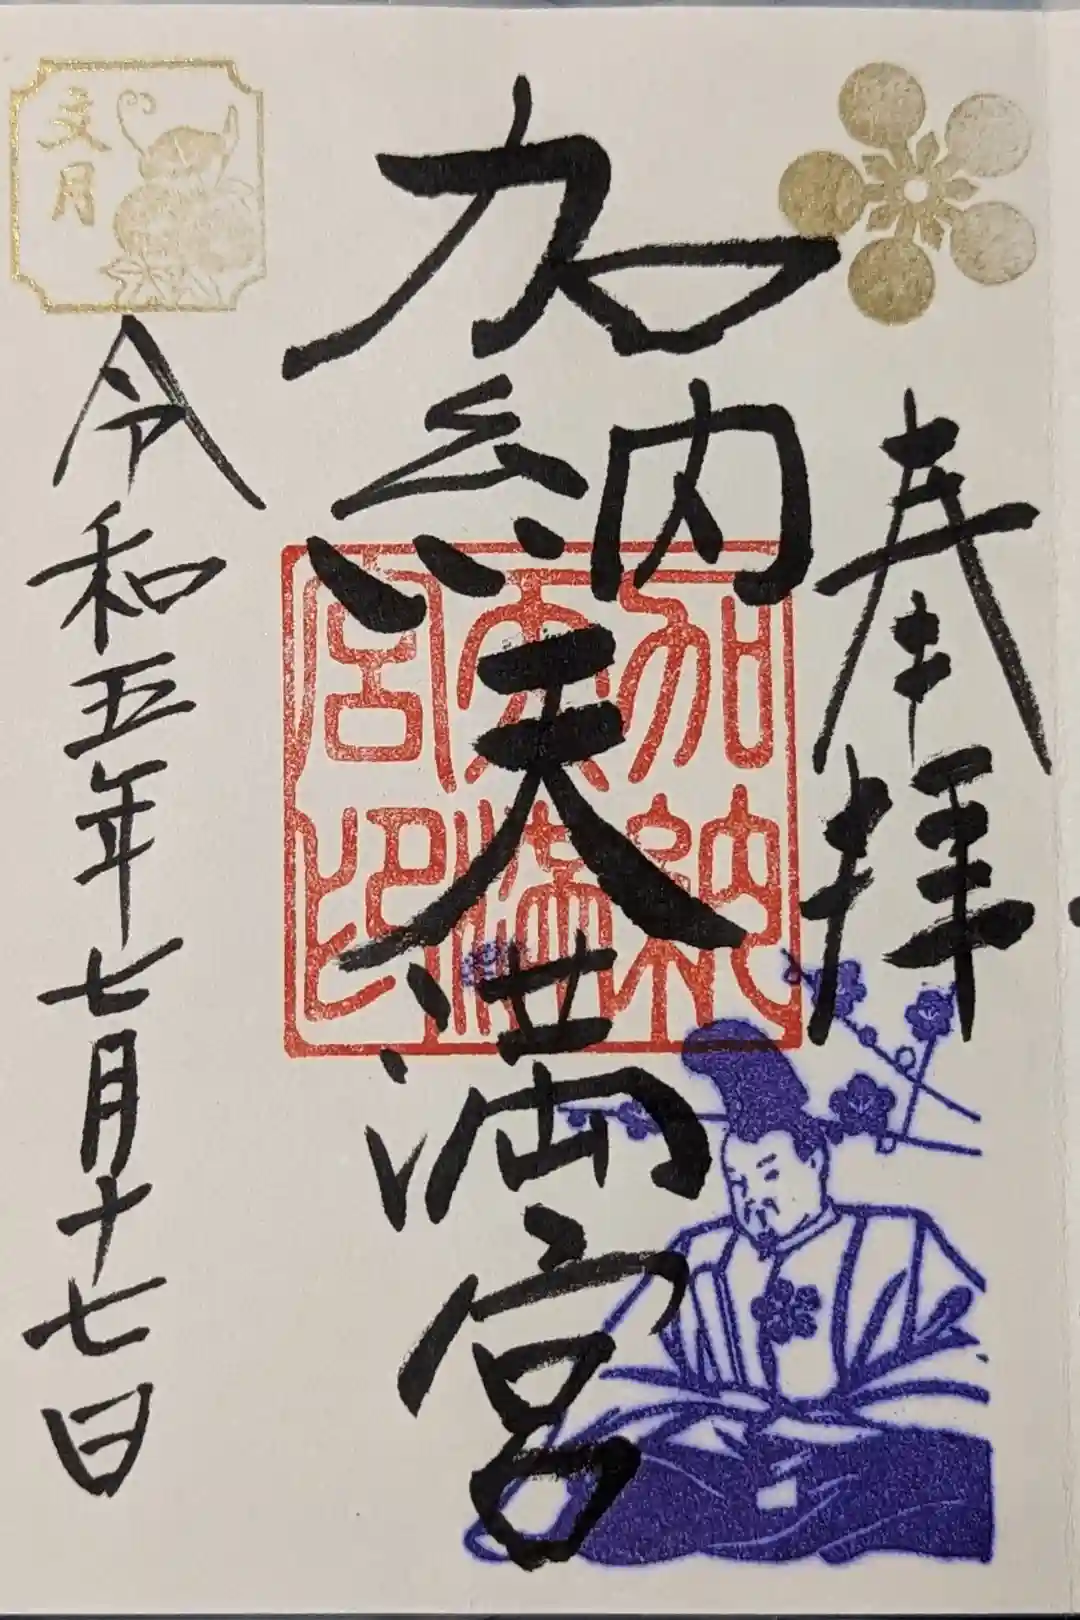 奉拝
加納天満宮
加納
天満
宮印
文月
令和五年七月十七日